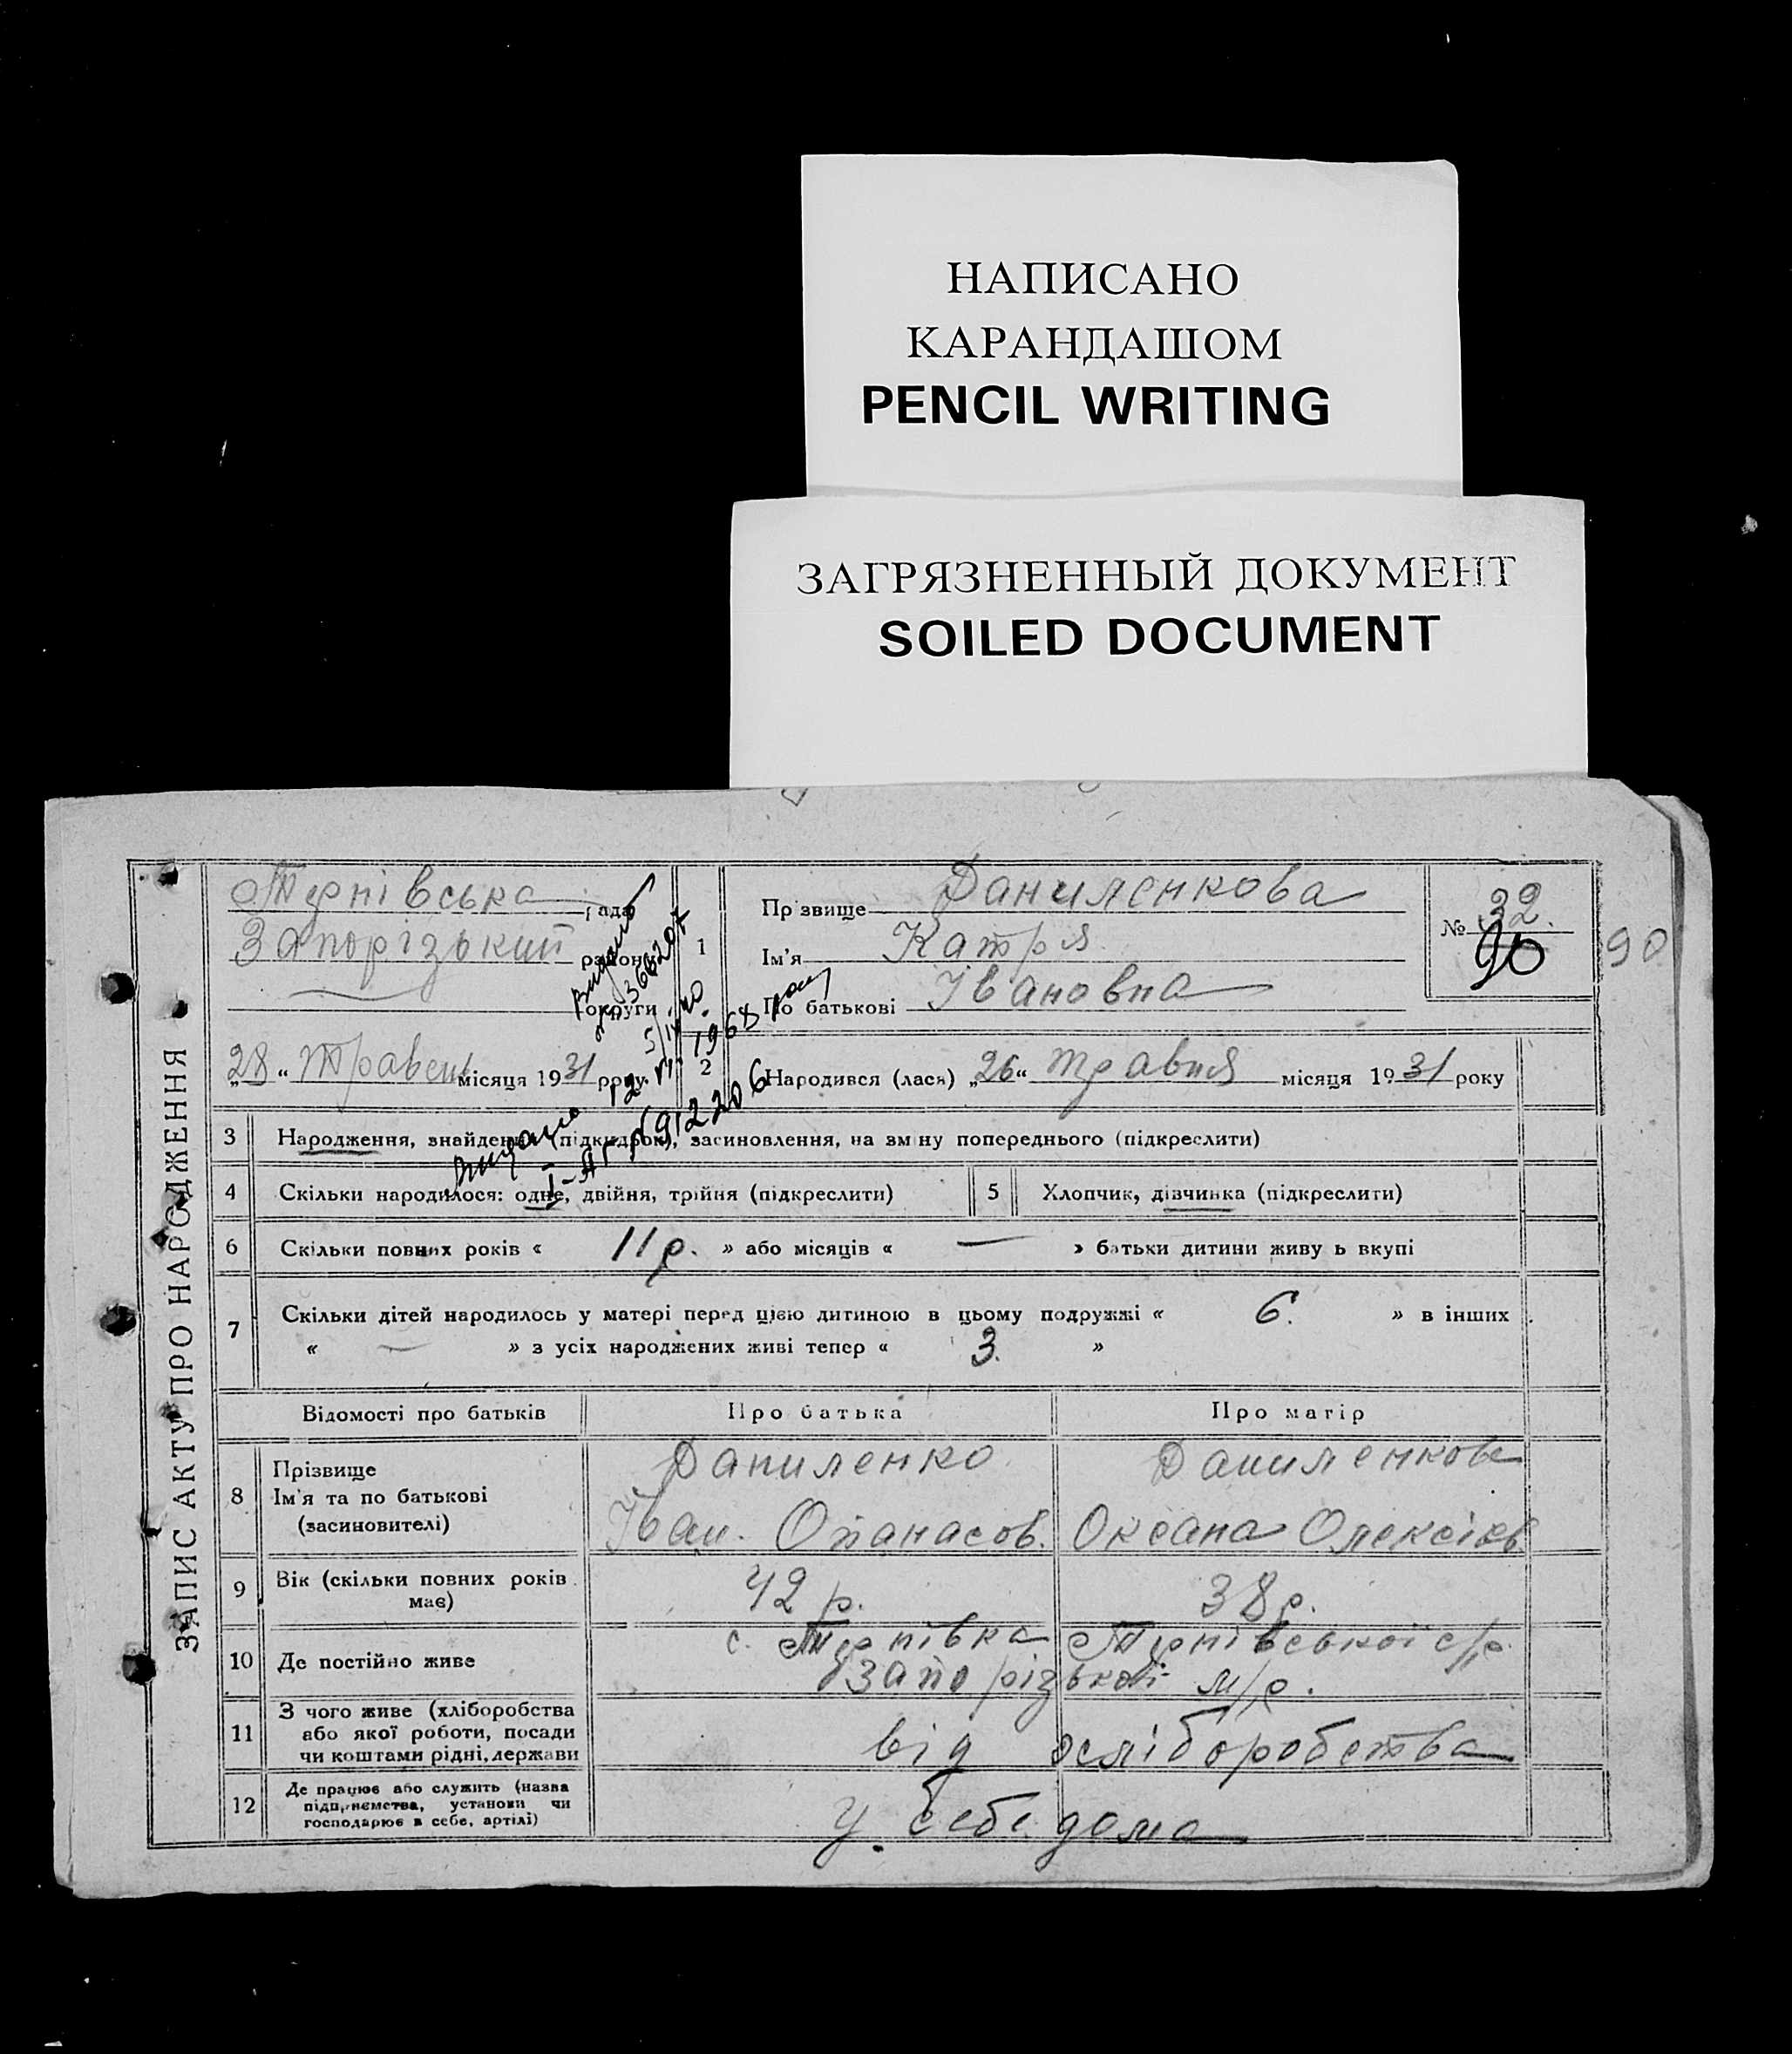 НАПИСАНО
КАРАНДАШОМ
PENCIL WRITING
ЗАГРЯЗНЕННЫЙ ДОКУМЕНТ
SOILED DOCUMENT
ЗАПИС АКТУ ПРО НАРОДЖЕННЯ
Тернівська рада
Запорізький району
округи
„28“ Травень місяця 1931 року
видано
№ 366207
видано 12. VI. 1968 року
I-АГ №912206
1
Прізвище Даниленкова
Ім'я Катря
По батькові Івановна
№ 32.
90
90
2 Народився (лася) „26“ травня місяця 1931 року
3 Народження, знайдення (підкидьок), засиновлення, на зміну попереднього (підкреслити)
4 Скільки народилося: одне, двійня, трійня (підкреслити)
5 Хлопчик, дівчинка (підкреслити)
6 Скільки повних років « 11 р. » або місяців « — » батьки дитини живуть вкупі
7 Скільки дітей народилось у матері перед цією дитиною в цьому подружжі « 6. » в інших
« — » з усіх народжених живі тепер « 3. »
Відомості про батьків Про батька Про матір
8 Прізвище
Ім'я та по батькові
(засиновителі)
Даниленко
Іван. Опанасов.
Даниленкова
Оксана Олексіев.
9 Вік (скільки повних років має)
42 р. 38 р.
10 Де постійно живе
с. Тернівка Тернівської с/р.
Запорізької м/р.
11 З чого живе (хліборобства
або якої роботи, посади
чи коштами рідні, держави
від хліборобства
12 Де працює або служить (назва
підприємства, установи чи
господарює в себе, артілі)
у себе дома